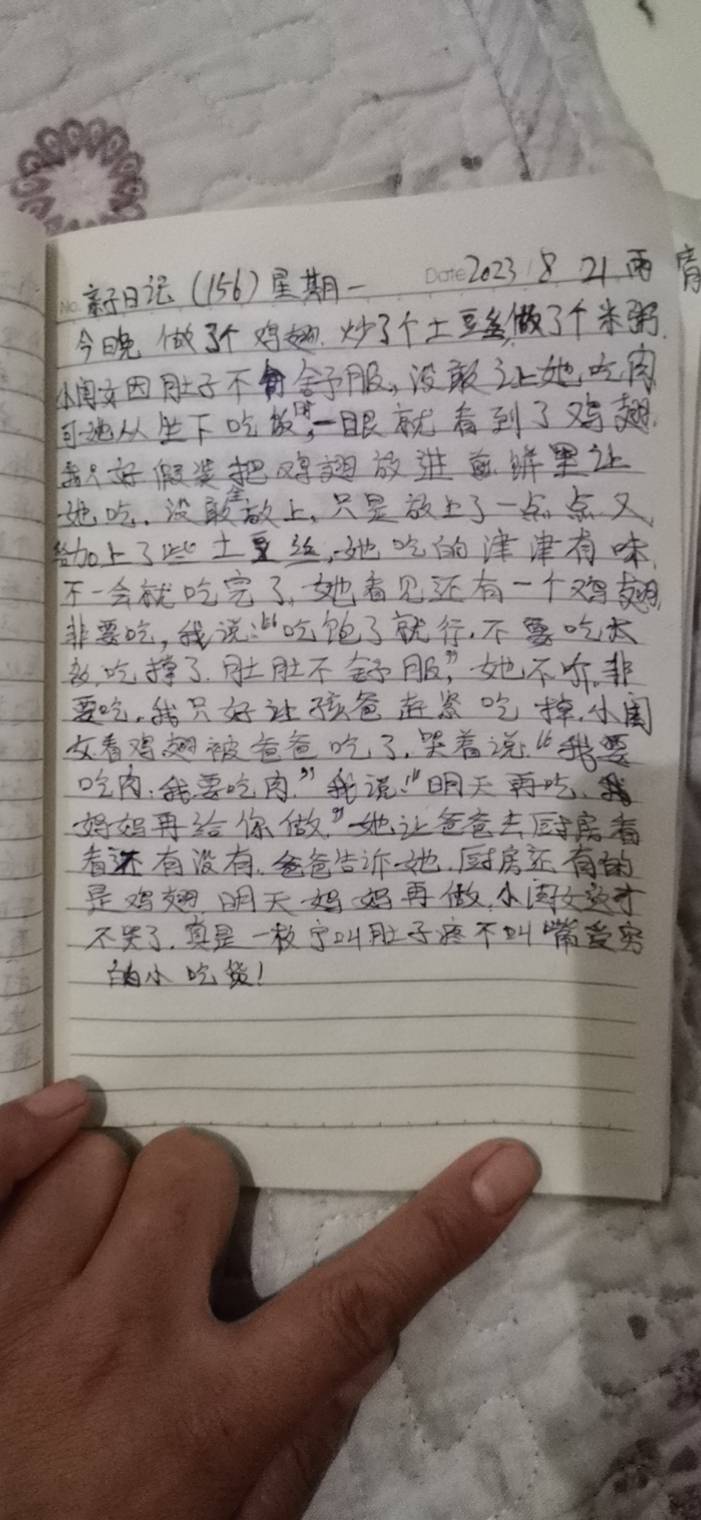 No. 亲子日记（156）星期一 Date 2023 8 21 雨
今晚做了个鸡翅.炒了个土豆丝,做了个米粥.
小闺女因肚子不舒服,没敢让她吃肉
可她从坐下吃饭时,一眼就看到了鸡翅.
我只好假装把鸡翅放进煎饼里让
她吃.没敢全放上,只是放上了一点点又
给加上了些土豆丝,她吃的津津有味.
不一会就吃完了.她看见还有一个鸡翅.
非要吃,我说:“吃饱了就行.不要吃太
吃撑了.肚肚不舒服,”她不听.非
要吃.我只好让孩爸赶紧吃掉.小闺
女看鸡翅被爸爸吃了.哭着说:“我要
吃肉.我要吃肉.”我说:“明天再吃.
妈妈再给你做.”她让爸爸去厨房看
看还有没有.爸爸告诉她.厨房还有的
是鸡翅.明天妈妈再做.小闺女这才
不哭了.真是一枚宁叫肚子疼不叫嘴受穷
的小吃货!